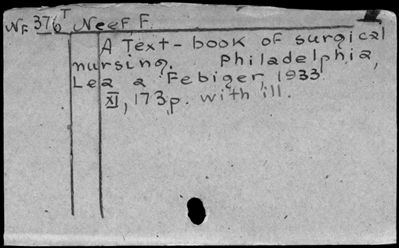 NF 376 T Neef F.
A Text-book of surgical
nursing. Philadelphia,
Lea a Febiger, 1933
XI, 173p. with ill.